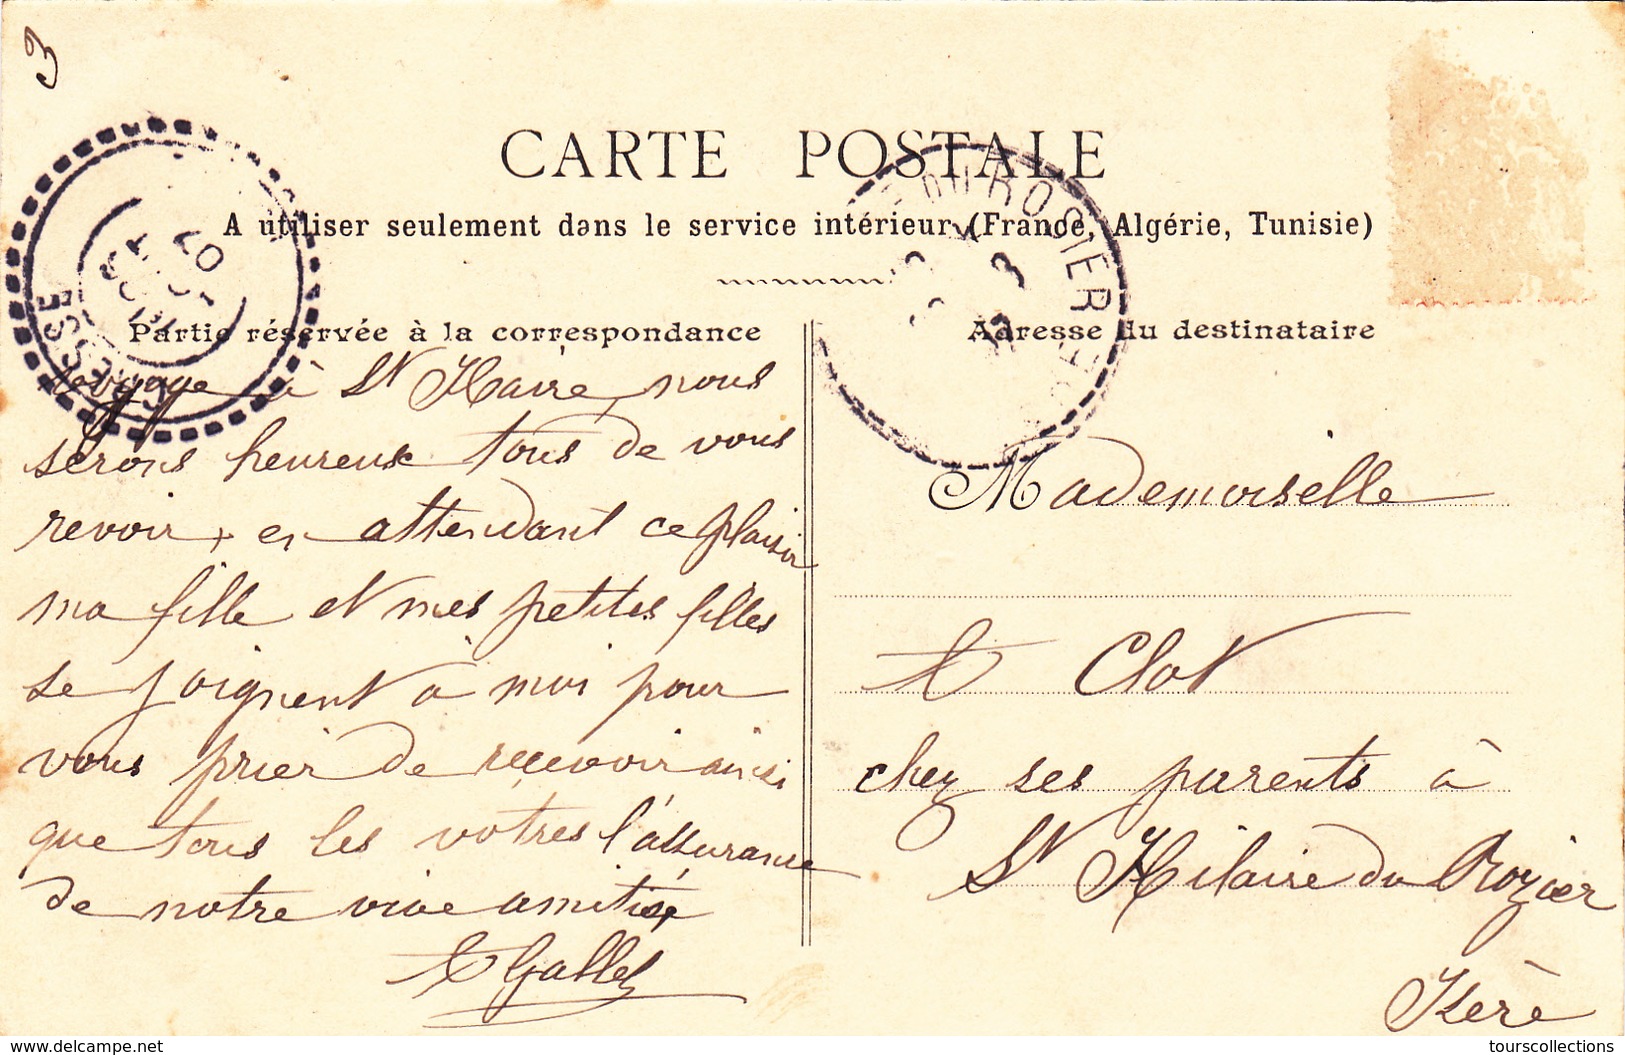 3
CARTE POSTALE
A utiliser seulement dans le service intérieur (France, Algérie, Tunisie)
Partie réservée à la correspondance
voyage à St Haire, nous
serons heureux tous de vous
revoir, en attendant ce plaisir
ma fille et mes petites filles
se joignent à moi pour
vous prier de recevoir ainsi
que tous les vôtres l'assurance
de notre vive amitié
Gallet
Adresse du destinataire
DU ROSIER
Mademoiselle
Clot
chez ses parents à
St Hilaire du Rozier
Isère
www.delcampe.net
tourscollections